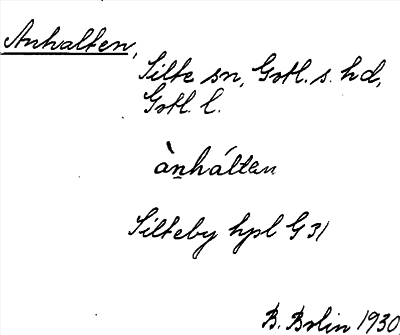 Anhalten,
Silte sn, Gotl. s. hd,
Gotl. l.
ànhá́ltan
Silteby hpl G 31
B. Bolin 1930